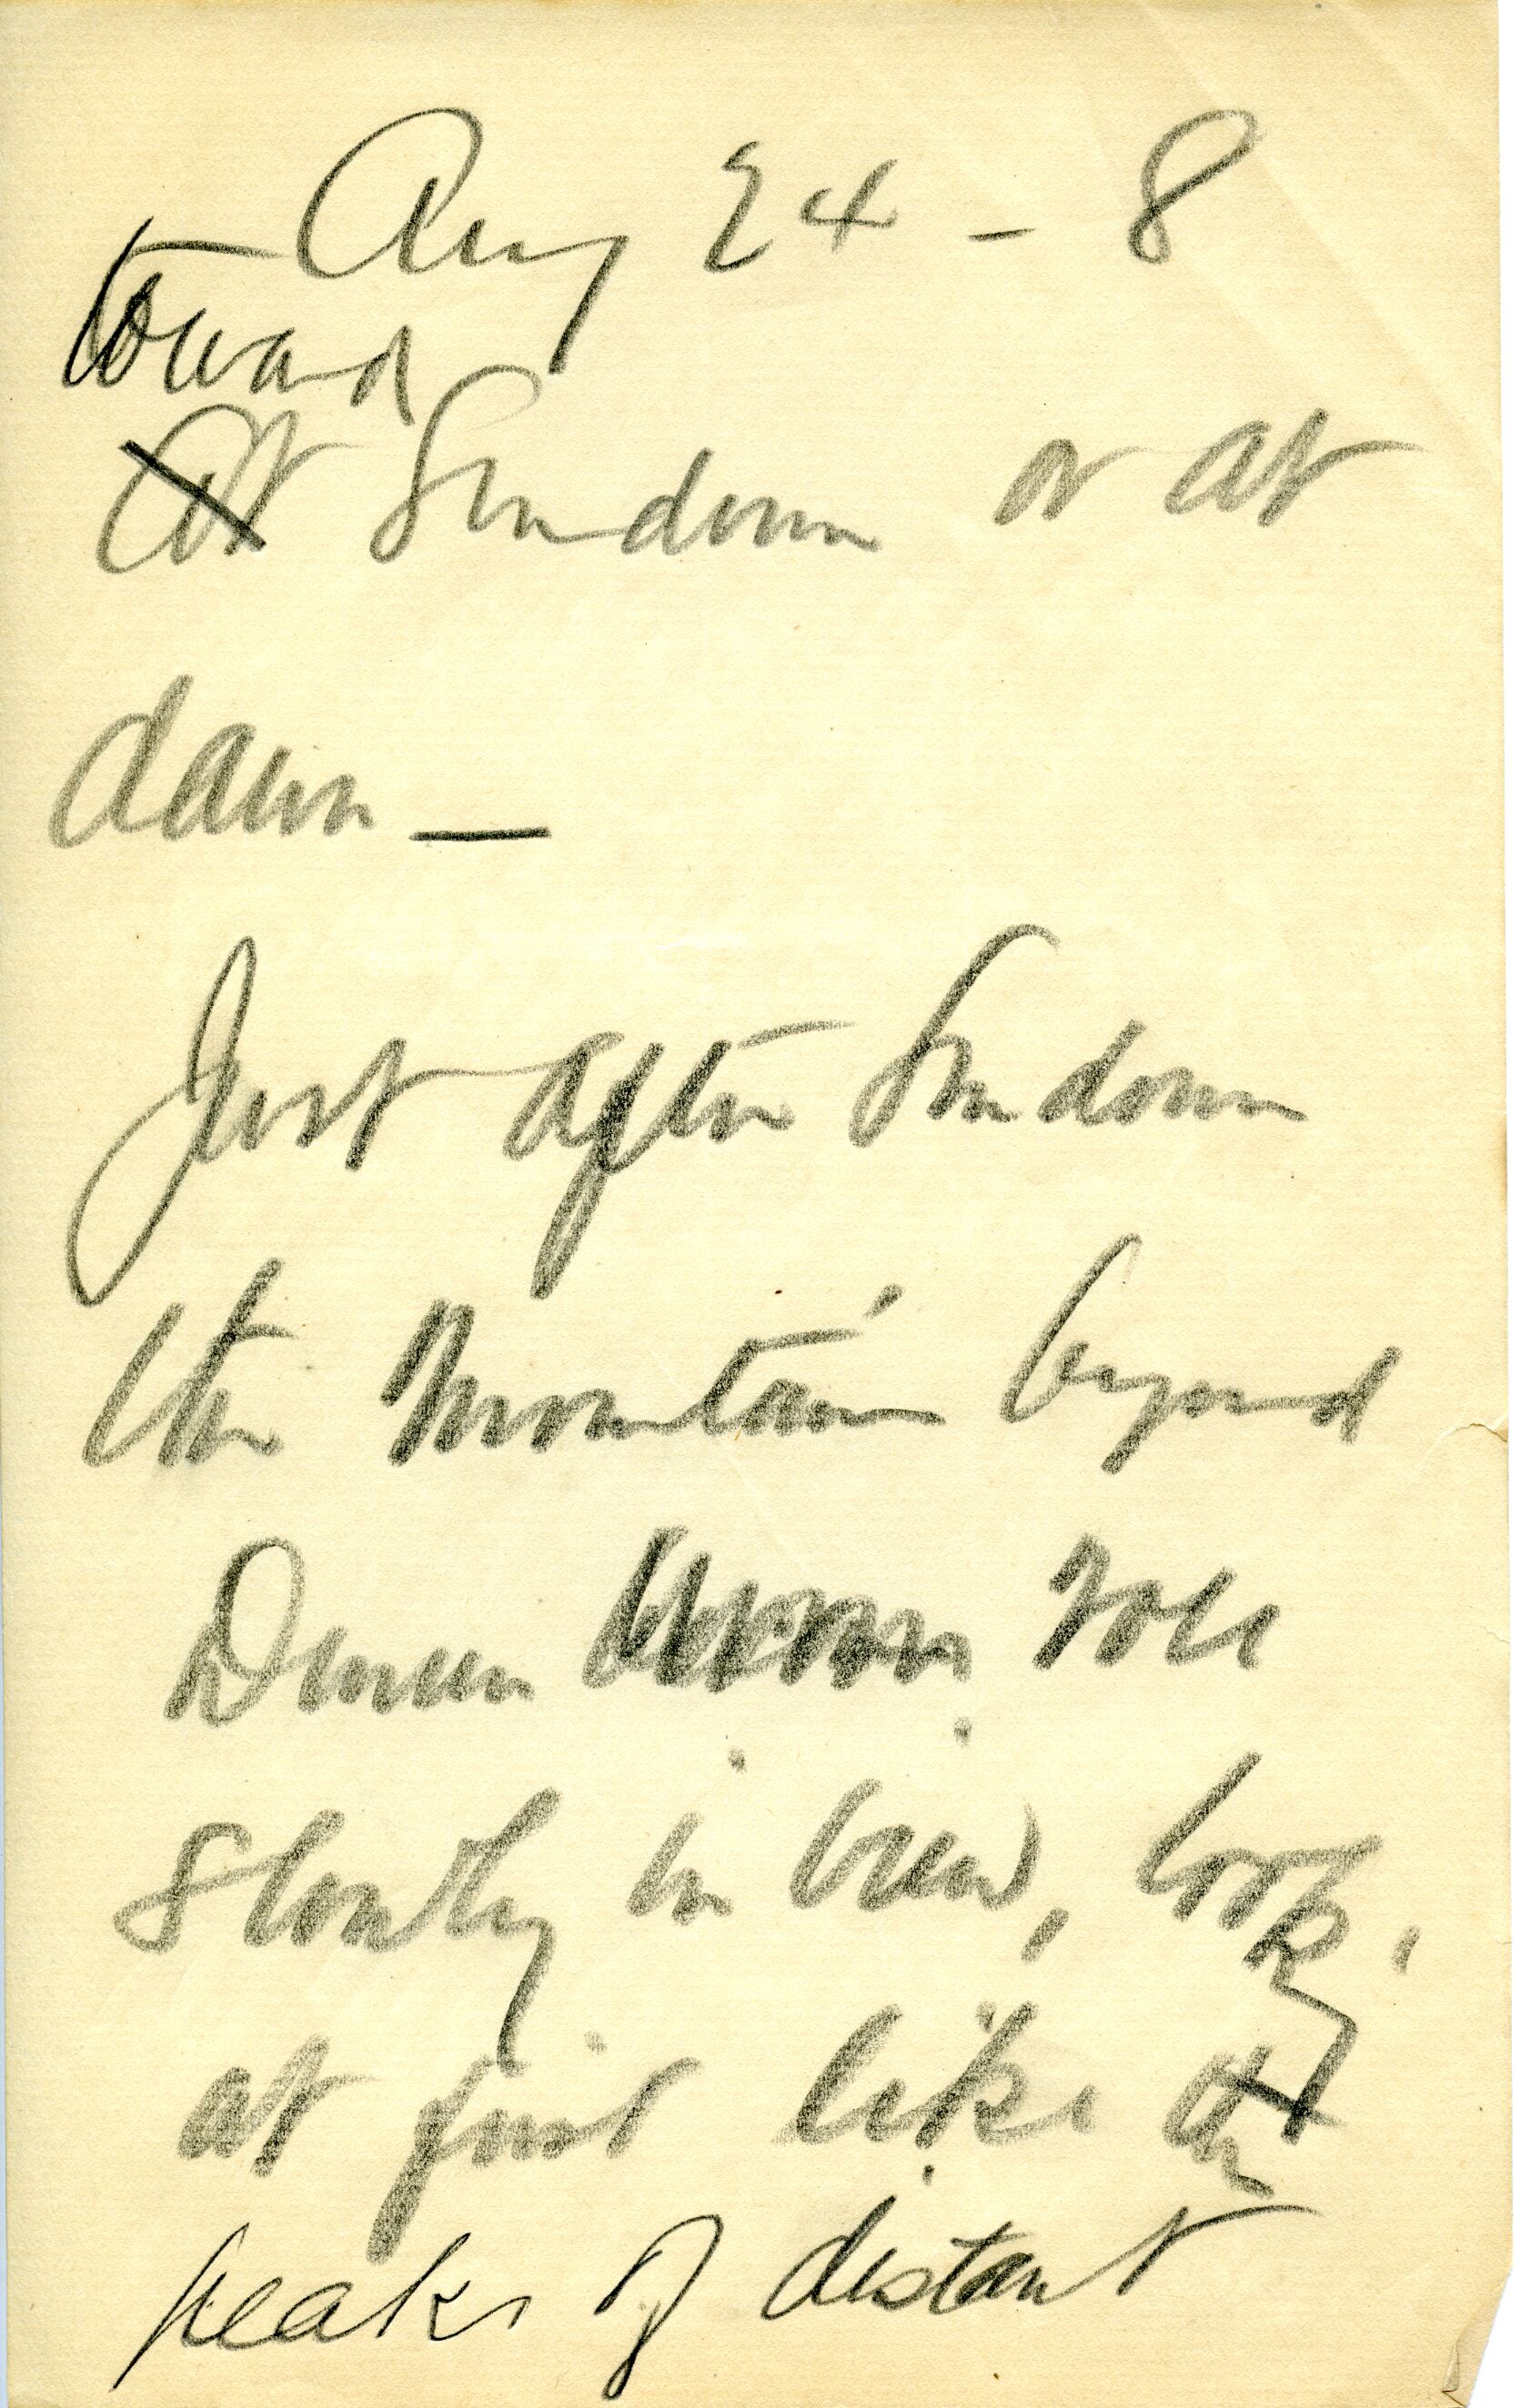 Aug 24 - 8
toward
At Sundown or at
dawn —
Just after Sundown
the Mountains beyond
roll
slowly in view, look,
at first like the
peaks of distant